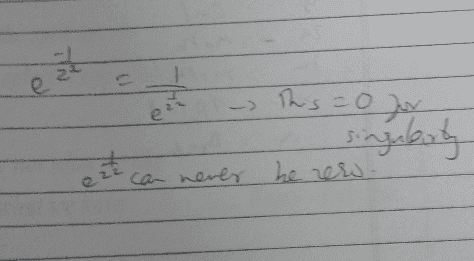 e^{-1/z²} = 1/e^{1/z²} → This = 0 for
singularity
e^{1/z²} can never be zero.